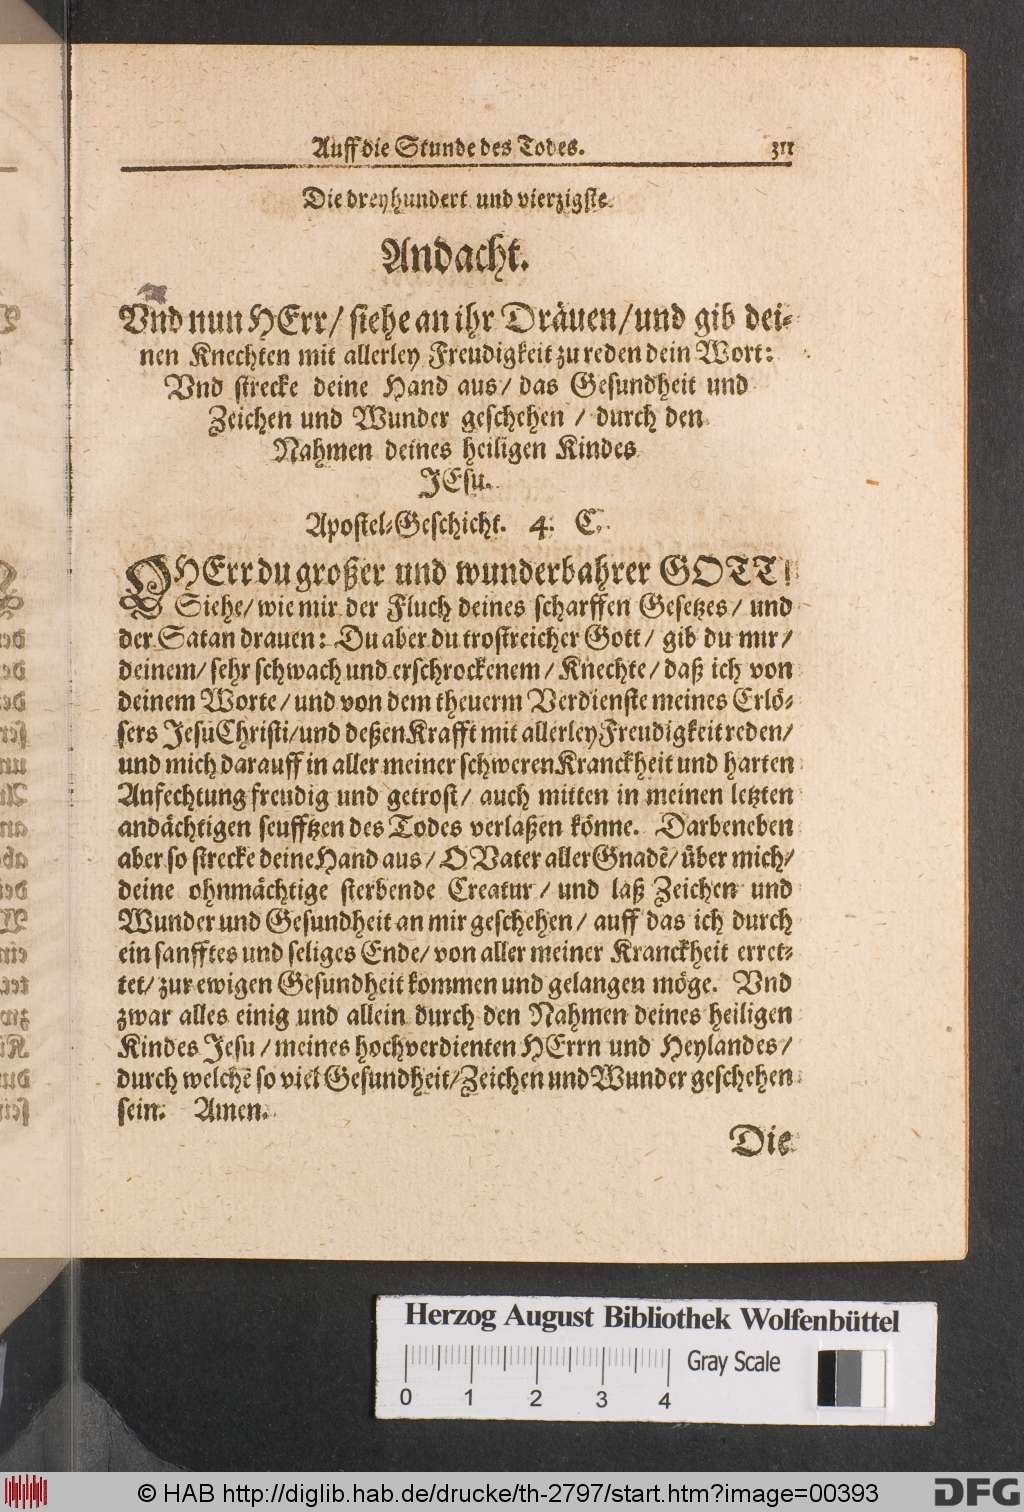 Auff die Stunde des Todes. 311
Die dreyhundert und vierzigste
Andacht.
Vnd nun HErr/ siehe an ihr Dräuen/ und gib dei-
nen Knechten mit allerley Freudigkeit zu reden dein Wort:
Vnd strecke deine Hand aus/ das Gesundheit und
Zeichen und Wunder geschehen / durch den
Nahmen deines heiligen Kindes
JEsu.
Apostel-Geschicht. 4. C.
O HErr du großer und wunderbahrer GOTT!
Siehe/ wie mir der Fluch deines scharffen Gesetzes/ und
der Satan drauen: Du aber du trostreicher Gott/ gib du mir/
deinem/ sehr schwach und erschrockenem/ Knechte/ daß ich von
deinem Worte/ und von dem theuerm Verdienste meines Erlö-
sers Jesu Christi/ und deßen Krafft mit allerley Freudigkeit reden/
und mich darauff in aller meiner schweren Kranckheit und harten
Anfechtung freudig und getrost/ auch mitten in meinen letzten
andächtigen seufftzen des Todes verlaßen könne. Darbeneben
aber so strecke deine Hand aus/ O Vater aller Gnadē/ über mich/
deine ohnmächtige sterbende Creatur/ und laß Zeichen und
Wunder und Gesundheit an mir geschehen/ auff das ich durch
ein sanfftes und seliges Ende/ von aller meiner Kranckheit erret-
tet/ zur ewigen Gesundheit kommen und gelangen möge. Vnd
zwar alles einig und allein durch den Nahmen deines heiligen
Kindes Jesu/ meines hochverdienten HErrn und Heylandes/
durch welchē so viel Gesundheit/ Zeichen und Wunder geschehen
sein. Amen.
Die
Herzog August Bibliothek Wolfenbüttel
Gray Scale
0 1 2 3 4
© HAB http://diglib.hab.de/drucke/th-2797/start.htm?image=00393
DFG